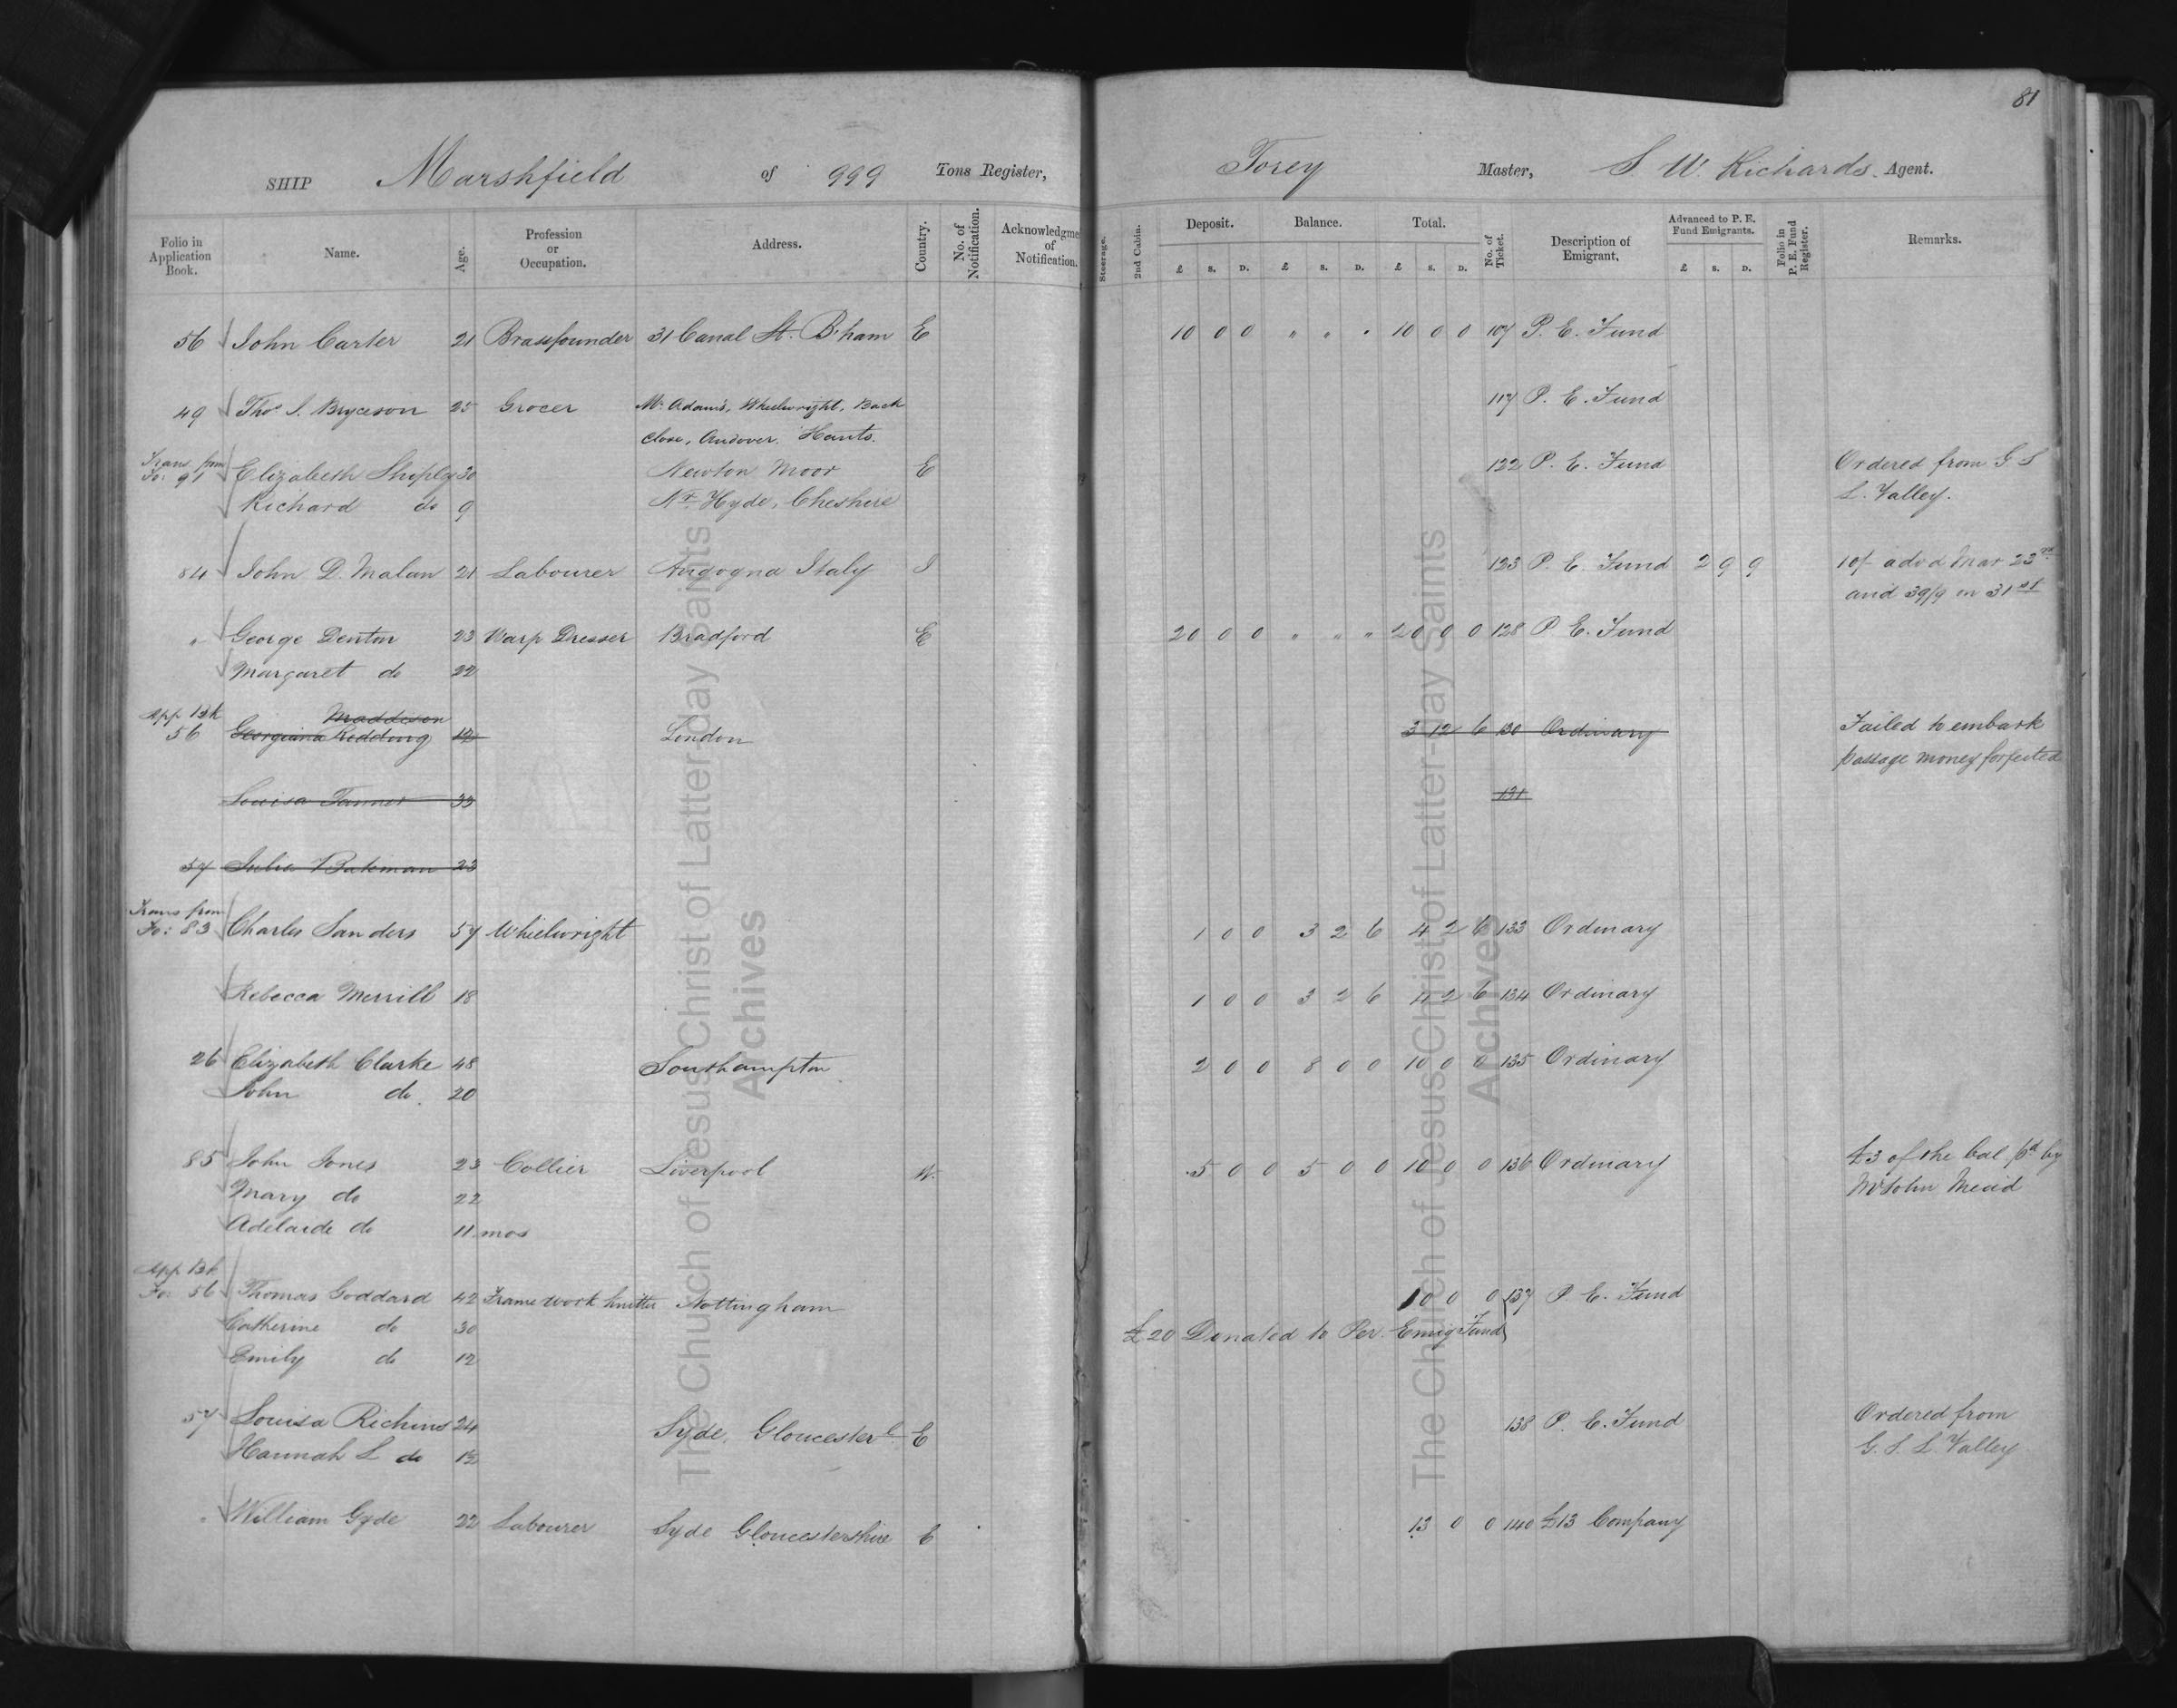 81
SHIP Marshfield of 999 Tons Register, Torey Master, S W. Richards. Agent.
Folio in Application Book. Name. Age. Profession or Occupation. Address. Country. No. of Notification. Acknowledgme of Notification. Steerage. 2nd Cabin. Deposit. £ s. D. Balance. £ s. D. Total. £ s. D. No. of Ticket. Description of Emigrant. Advanced to P. E. Fund Emigrants. £ s. D. Folio in P. E. Fund Register. Remarks.
56 John Carter 21 Brassfounder 31 Canal St. B'ham E 10 0 0 " " " 10 0 0 107 P. E. Fund
49 Thos. S. Bryceson 25 Grocer Mr. Adams, Wheelwright, Back 117 P. E. Fund
Close, Andover. Hants.
Trans. from Fo: 91 Elizabeth Sheply 30 Newton Moor E 122 P. E. Fund Ordered from G S
Richard do 9 Nr. Hyde, Cheshire L. Valley.
84 John D. Malan 21 Labourer Angogna Italy I 123 P. E. Fund 2 9 9 10/- advd Mar 23rd
and 39/9 on 31st
" George Denton 23 Warp Dresser Bradford E 20 0 0 " " " 20 0 0 128 P. E. Fund
Margaret do 22
App Bk Maddison
56 Georgiana Redding 12 London 3 12 6 130 Ordinary Failed to embark
passage money forfeited
Louisa Tanner 33 131
57 Julia Bateman 23
Trans from
Fo: 83 Charles Sanders 57 Wheelwright 1 0 0 3 2 6 4 2 6 133 Ordinary
Rebecca Merrill 18 1 0 0 3 2 6 4 2 6 134 Ordinary
26 Elizabeth Clarke 48 Southampton 2 0 0 8 0 0 10 0 0 135 Ordinary
John do. 20
85 John Jones 23 Collier Liverpool W. 5 0 0 5 0 0 10 0 0 136 Ordinary £3 of the bal pd by
Mary do 22 Mr John Mend
Adelaide do 11 mos
App Bk
Fo 56 Thomas Goddard 42 Framework knitter Nottingham 10 0 0 137 P. E. Fund
Catherine do 30 £20 Donated to Per. Emig Fund
Emily do 12
57 Louisa Richins 24 Syde, Gloucester E 138 P. E. Fund Ordered from
Hannah L do 1½ G. S. L. Valley
" William Gyde 22 Labourer Syde Gloucestershire E 13 0 0 140 £13 Company
The Church of Jesus Christ of Latter-day Saints
Archives
The Church of Jesus Christ of Latter-day Saints
Archives